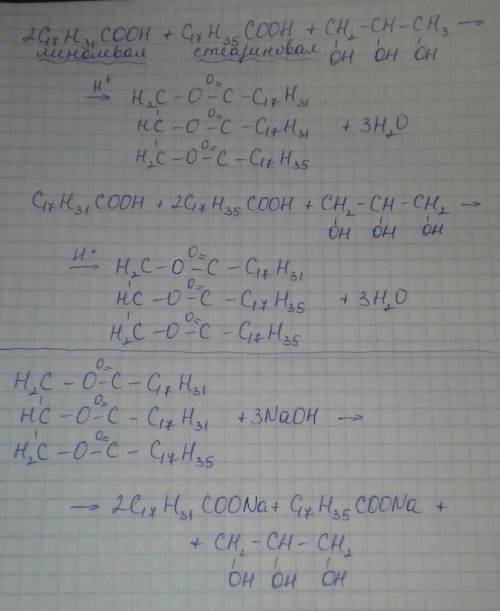 2C₁₇H₃₁COOH + C₁₇H₃₅COOH + CH₂ – CH – CH₃ →
линолевая стеариновая OH OH OH
H⁺ → H₂C – O – C – C₁₇H₃₁
O=
HC – O – C – C₁₇H₃₁ + 3H₂O
O=
H₂C – O – C – C₁₇H₃₅
O=
C₁₇H₃₁COOH + 2C₁₇H₃₅COOH + CH₂ – CH – CH₂ →
OH OH OH
H⁺ → H₂C – O – C – C₁₇H₃₁
O=
HC – O – C – C₁₇H₃₅ + 3H₂O
O=
H₂C – O – C – C₁₇H₃₅
O=
H₂C – O – C – C₁₇H₃₁
O=
HC – O – C – C₁₇H₃₁ + 3NaOH →
O=
H₂C – O – C – C₁₇H₃₅
→ 2C₁₇H₃₁COONa + C₁₇H₃₅COONa +
+ CH₂ – CH – CH₂
OH OH OH